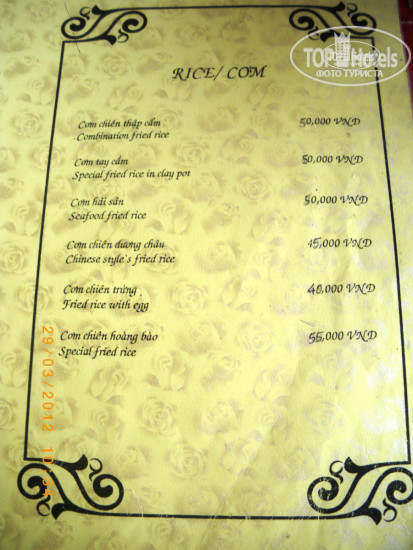 TOP Hotels
ФОТО ТУРИСТА
RICE/ CƠM
Cơm chiên thập cẩm 50,000 VND
Combination fried rice
Cơm tay cầm 50,000 VND
Special fried rice in clay pot
Cơm hải sản 50,000 VND
Seafood fried rice
Cơm chiên dương châu 45,000 VND
Chinese style's fried rice
Cơm chiên trứng 40,000 VND
Fried rice with egg
Cơm chiên hoàng bào 55,000 VND
Special fried rice
29/03/2012